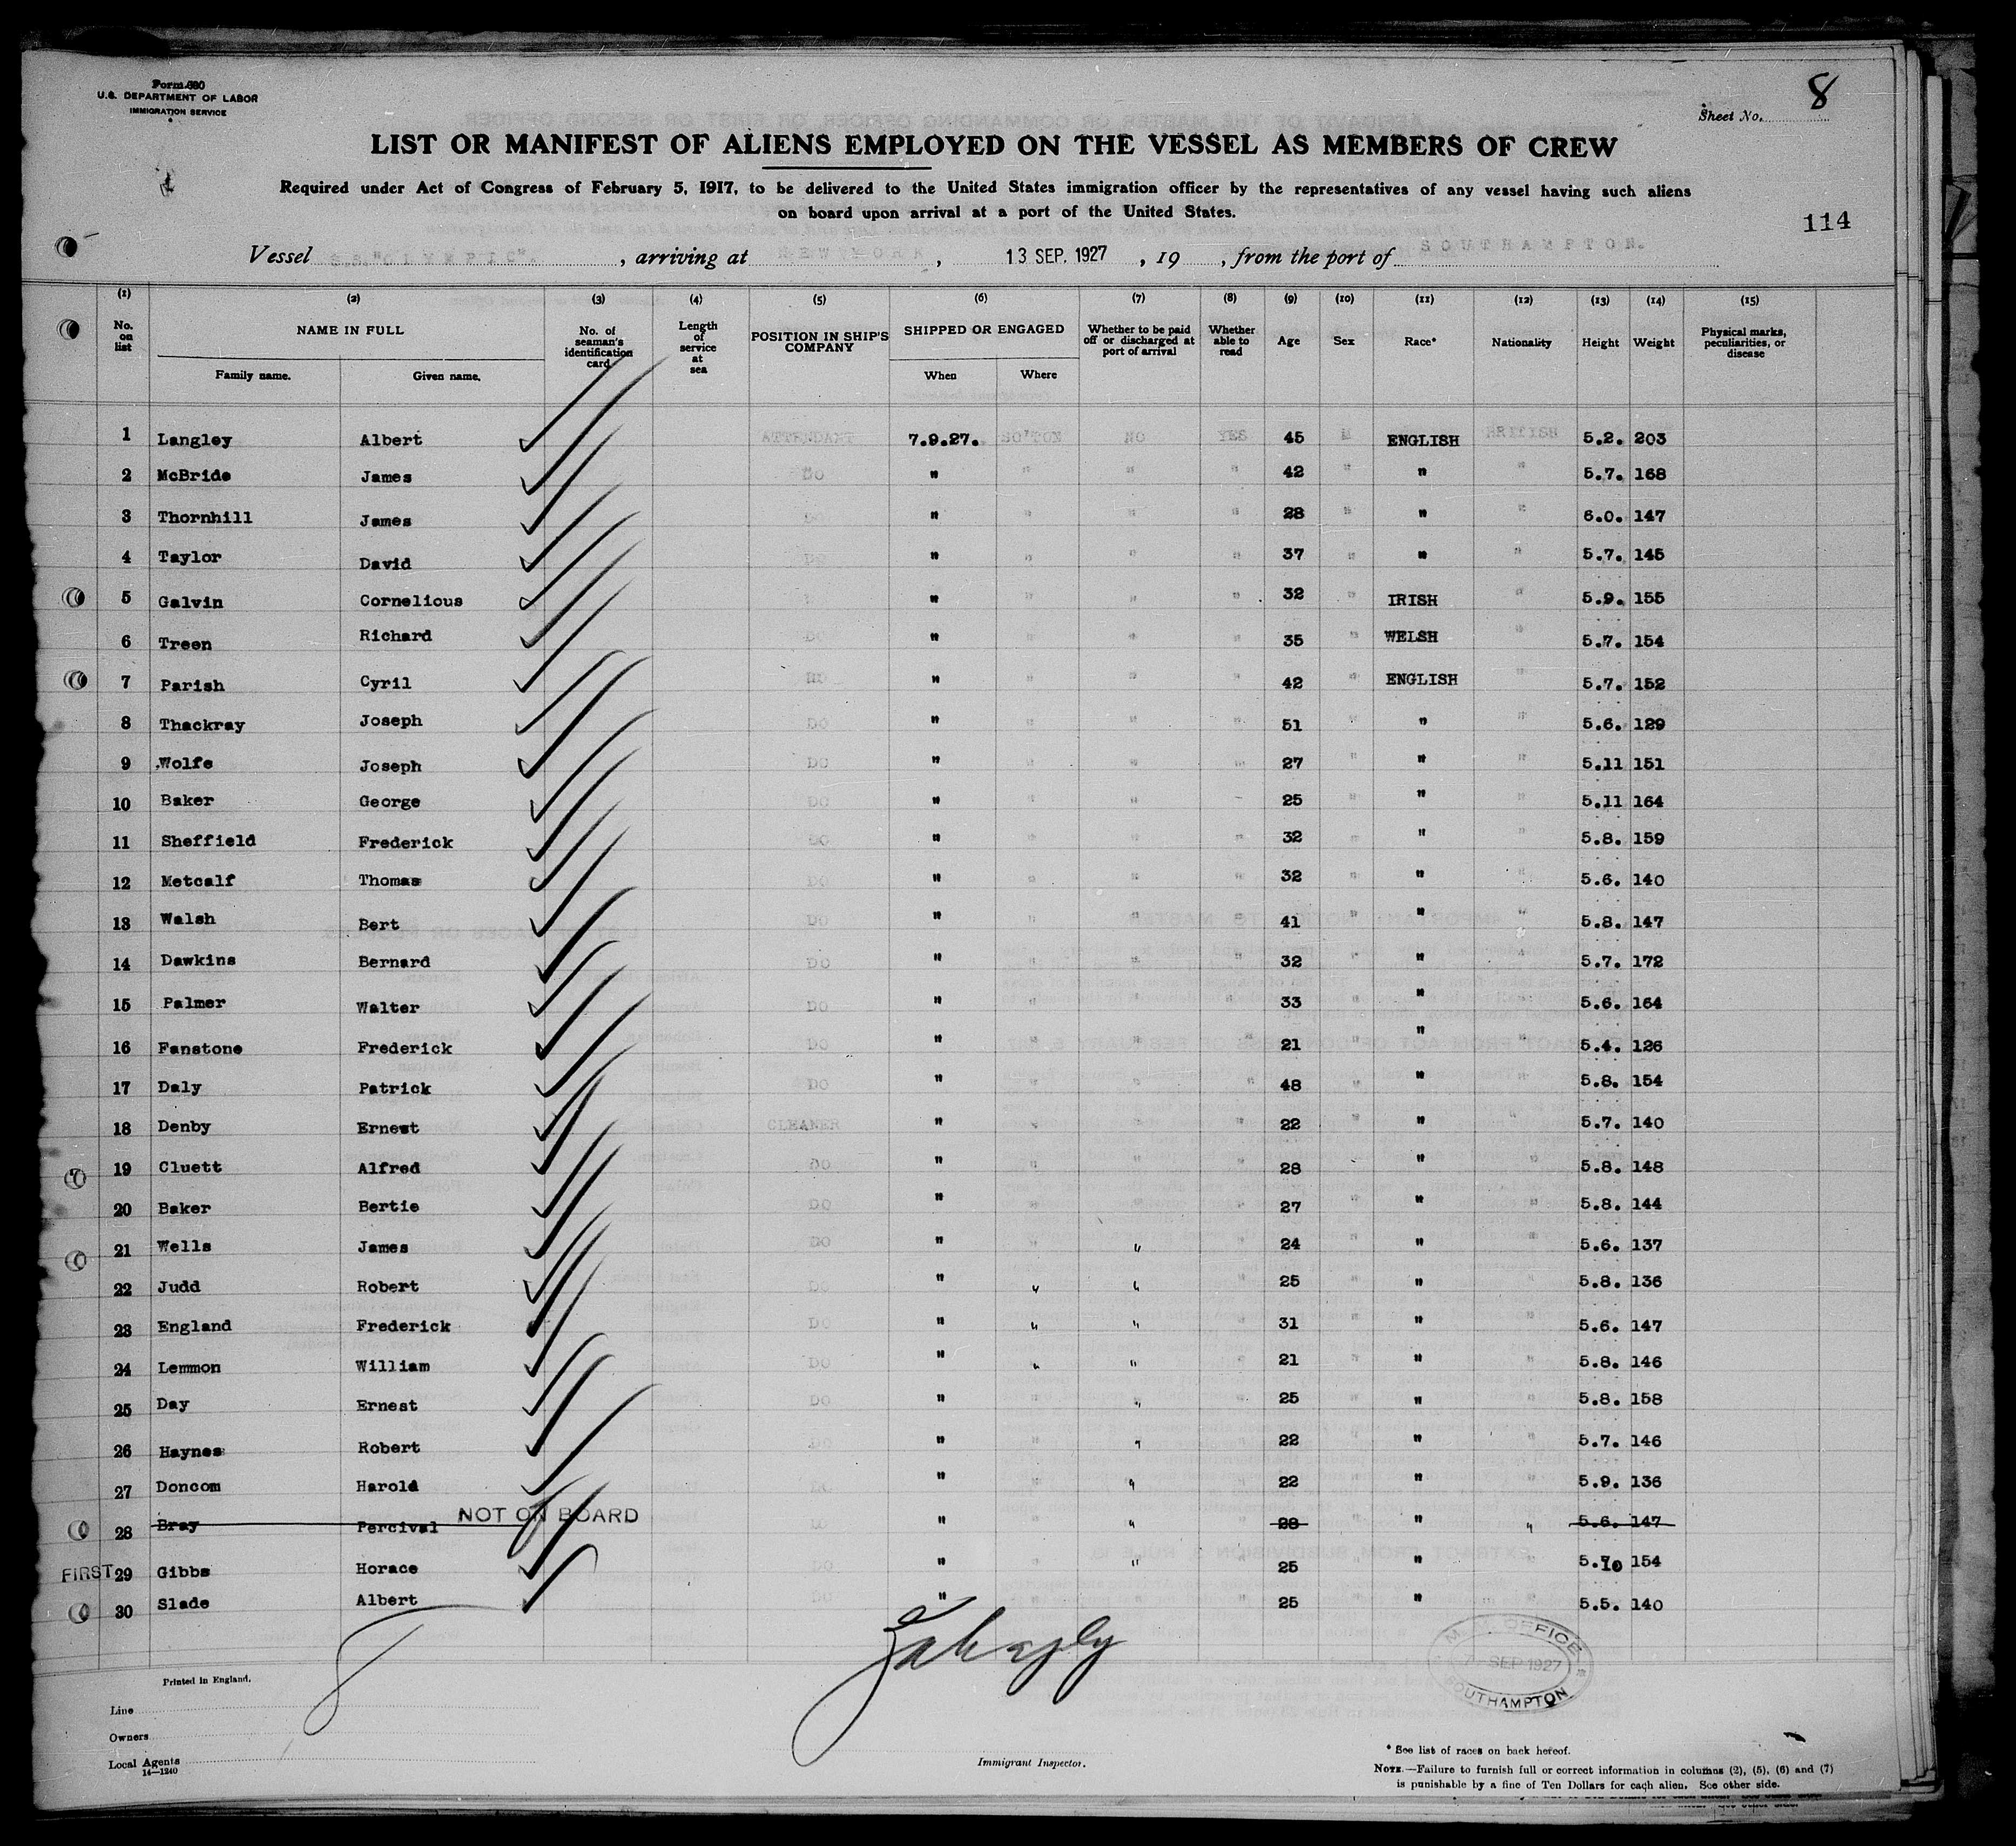 Form 680
U.S. DEPARTMENT OF LABOR
IMMIGRATION SERVICE
8
Sheet No.
LIST OR MANIFEST OF ALIENS EMPLOYED ON THE VESSEL AS MEMBERS OF CREW
Required under Act of Congress of February 5, 1917, to be delivered to the United States immigration officer by the representatives of any vessel having such aliens
on board upon arrival at a port of the United States.
114
Vessel S.S. "OLYMPIC". , arriving at NEW YORK , 13 SEP. 1927 , 19 , from the port of SOUTHAMPTON.
(1) (2) (3) (4) (5) (6) (7) (8) (9) (10) (11) (12) (13) (14) (15)
No. on list NAME IN FULL Family name. Given name. No. of seaman's identification card Length of service at sea POSITION IN SHIP'S COMPANY SHIPPED OR ENGAGED When Where Whether to be paid off or discharged at port of arrival Whether able to read Age Sex Race* Nationality Height Weight Physical marks, peculiarities, or disease
1 Langley Albert ATTENDANT 7.9.27. SO'TON NO YES 45 M ENGLISH BRITISH 5.2. 203
2 McBride James DO " " " " 42 " " " 5.7. 168
3 Thornhill James " " " " 28 " " " 6.0. 147
4 Taylor David DO " " " " 37 " " " 5.7. 145
5 Galvin Cornelious " " " " 32 " IRISH " 5.9. 155
6 Treen Richard DO " " " " 35 " WELSH " 5.7. 154
7 Parish Cyril DO " " " " 42 " ENGLISH " 5.7. 152
8 Thackray Joseph DO " " " " 51 " " " 5.6. 129
9 Wolfe Joseph DO " " " " 27 " " " 5.11 151
10 Baker George DO " " " " 25 " " " 5.11 164
11 Sheffield Frederick DO " " " " 32 " " " 5.8. 159
12 Metcalf Thomas DO " " " " 32 " " " 5.6. 140
13 Walsh Bert DO " " " " 41 " " " 5.8. 147
14 Dawkins Bernard DO " " " " 32 " " " 5.7. 172
15 Palmer Walter DO " " " " 33 " " " 5.6. 164
16 Fanstone Frederick DO " " " " 21 " " " 5.4. 126
17 Daly Patrick DO " " " " 48 " " " 5.8. 154
18 Denby Ernest CLEANER " " " " 22 " " " 5.7. 140
19 Cluett Alfred DO " " " " 28 " " " 5.8. 148
20 Baker Bertie DO " " " " 27 " " " 5.8. 144
21 Wells James DO " " " " 24 " " " 5.6. 137
22 Judd Robert DO " " " " 25 " " " 5.8. 136
23 England Frederick DO " " " " 31 " " " 5.6. 147
24 Lemmon William DO " " " " 21 " " " 5.8. 146
25 Day Ernest DO " " " " 25 " " " 5.8. 158
26 Haynes Robert DO " " " " 22 " " " 5.7. 146
27 Doncom Harold DO " " " " 22 " " " 5.9. 136
NOT ON BOARD
28 Bray Percival DO " " " " 28 " " " 5.6. 147
FIRST 29 Gibbs Horace DO " " " " 25 " " " 5.10 154
30 Slade Albert DO " 25 " 5.5. 140
8
M.M. OFFICE
7 SEP 1927
SOUTHAMPTON
Printed in England.
Line
Owners
Local Agents
14—1240
Immigrant Inspector.
* See list of races on back hereof.
NOTE.—Failure to furnish full or correct information in columns (2), (5), (6) and (7)
is punishable by a fine of Ten Dollars for each alien. See other side.